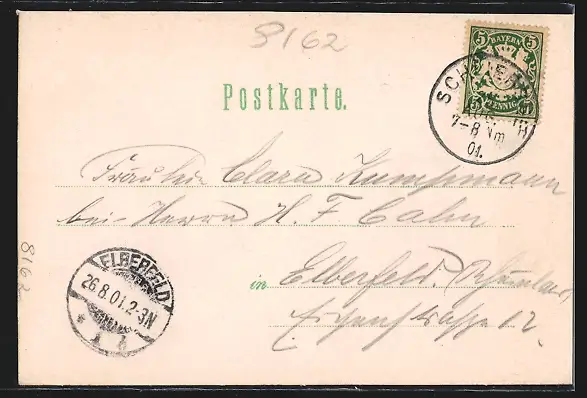 8162
5 BAYERN 5
5 PFENNIG 5
7-8 Nm
01.
Postkarte.
Fräulein Clara Kumpmann
bei Herrn H. F. Cahn
in Elberfeld.
12.
ELBERFELD
26.8.01.2-3N
8162